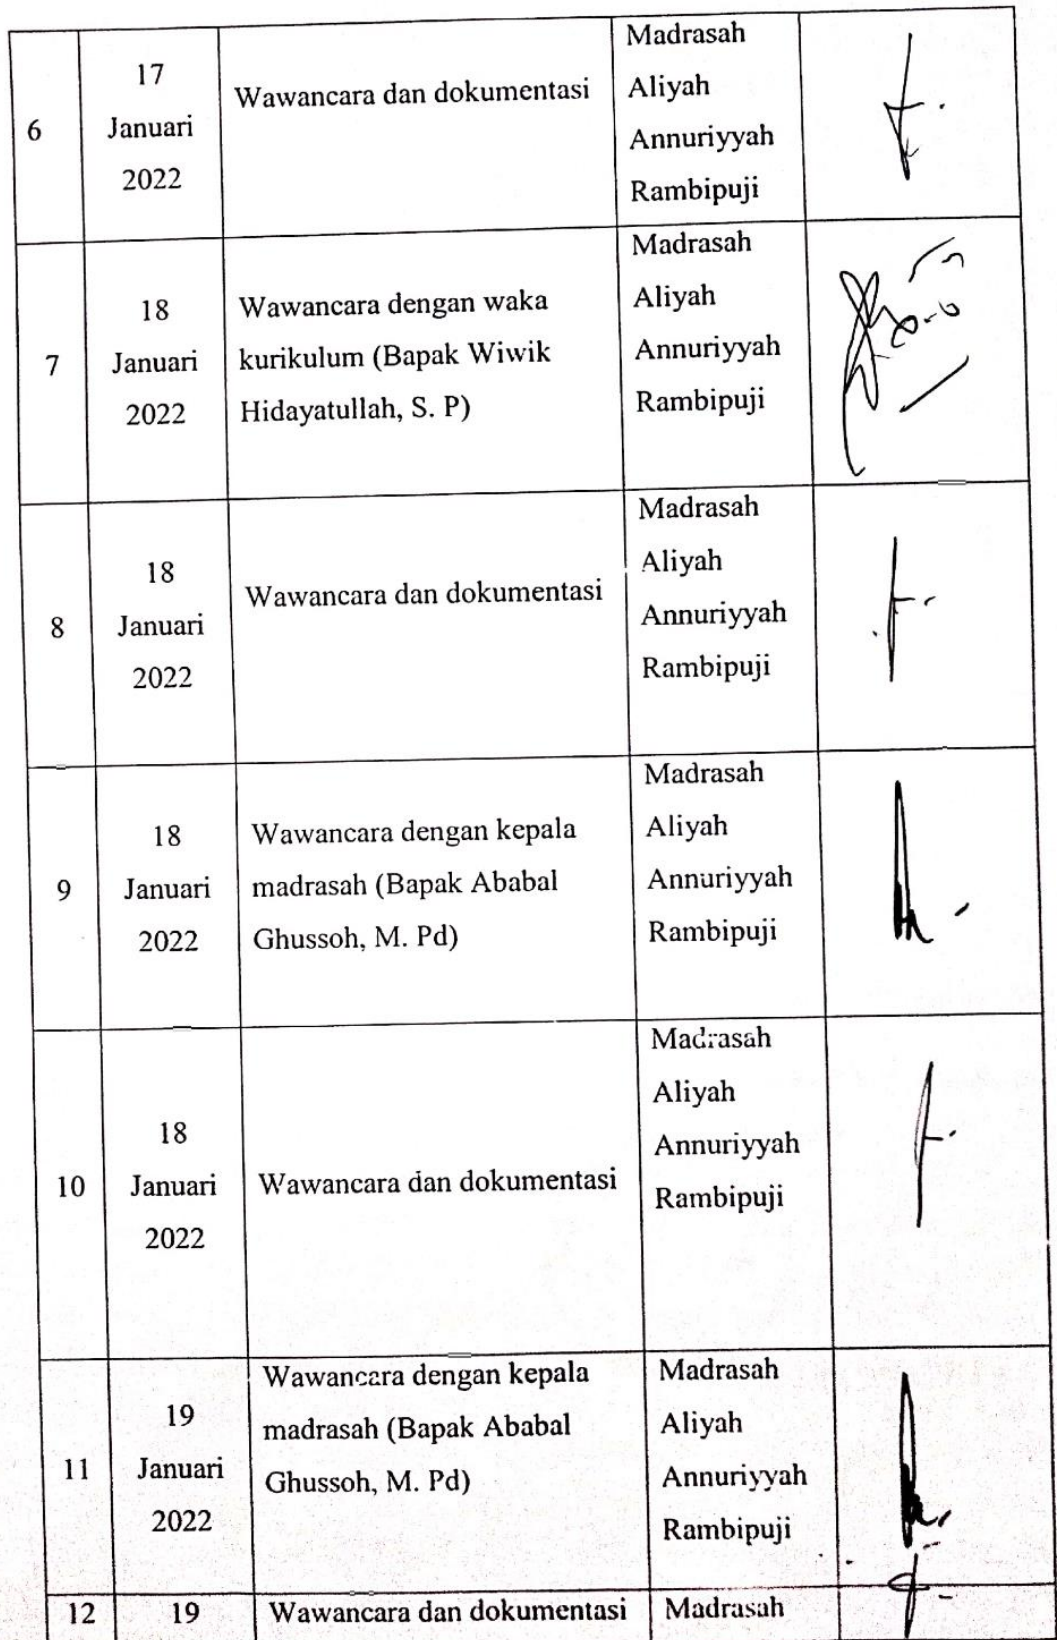 6
17
Januari
2022
Wawancara dan dokumentasi
Madrasah
Aliyah
Annuriyyah
Rambipuji
7
18
Januari
2022
Wawancara dengan waka
kurikulum (Bapak Wiwik
Hidayatullah, S. P)
Madrasah
Aliyah
Annuriyyah
Rambipuji
8
18
Januari
2022
Wawancara dan dokumentasi
Madrasah
Aliyah
Annuriyyah
Rambipuji
9
18
Januari
2022
Wawancara dengan kepala
madrasah (Bapak Ababal
Ghussoh, M. Pd)
Madrasah
Aliyah
Annuriyyah
Rambipuji
10
18
Januari
2022
Wawancara dan dokumentasi
Madrasah
Aliyah
Annuriyyah
Rambipuji
11
19
Januari
2022
Wawancara dengan kepala
madrasah (Bapak Ababal
Ghussoh, M. Pd)
Madrasah
Aliyah
Annuriyyah
Rambipuji
12
19
Wawancara dan dokumentasi
Madrasah